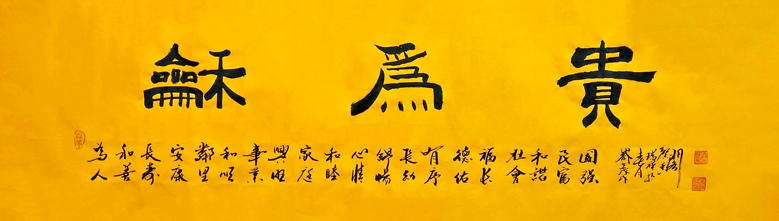 龢爲貴
為人
和善
長壽
安康
鄰里
和順
事業
興旺
家庭
和睦
心情
舒暢
長幼
有序
德佑
福長
社會
和諧
民富
國強